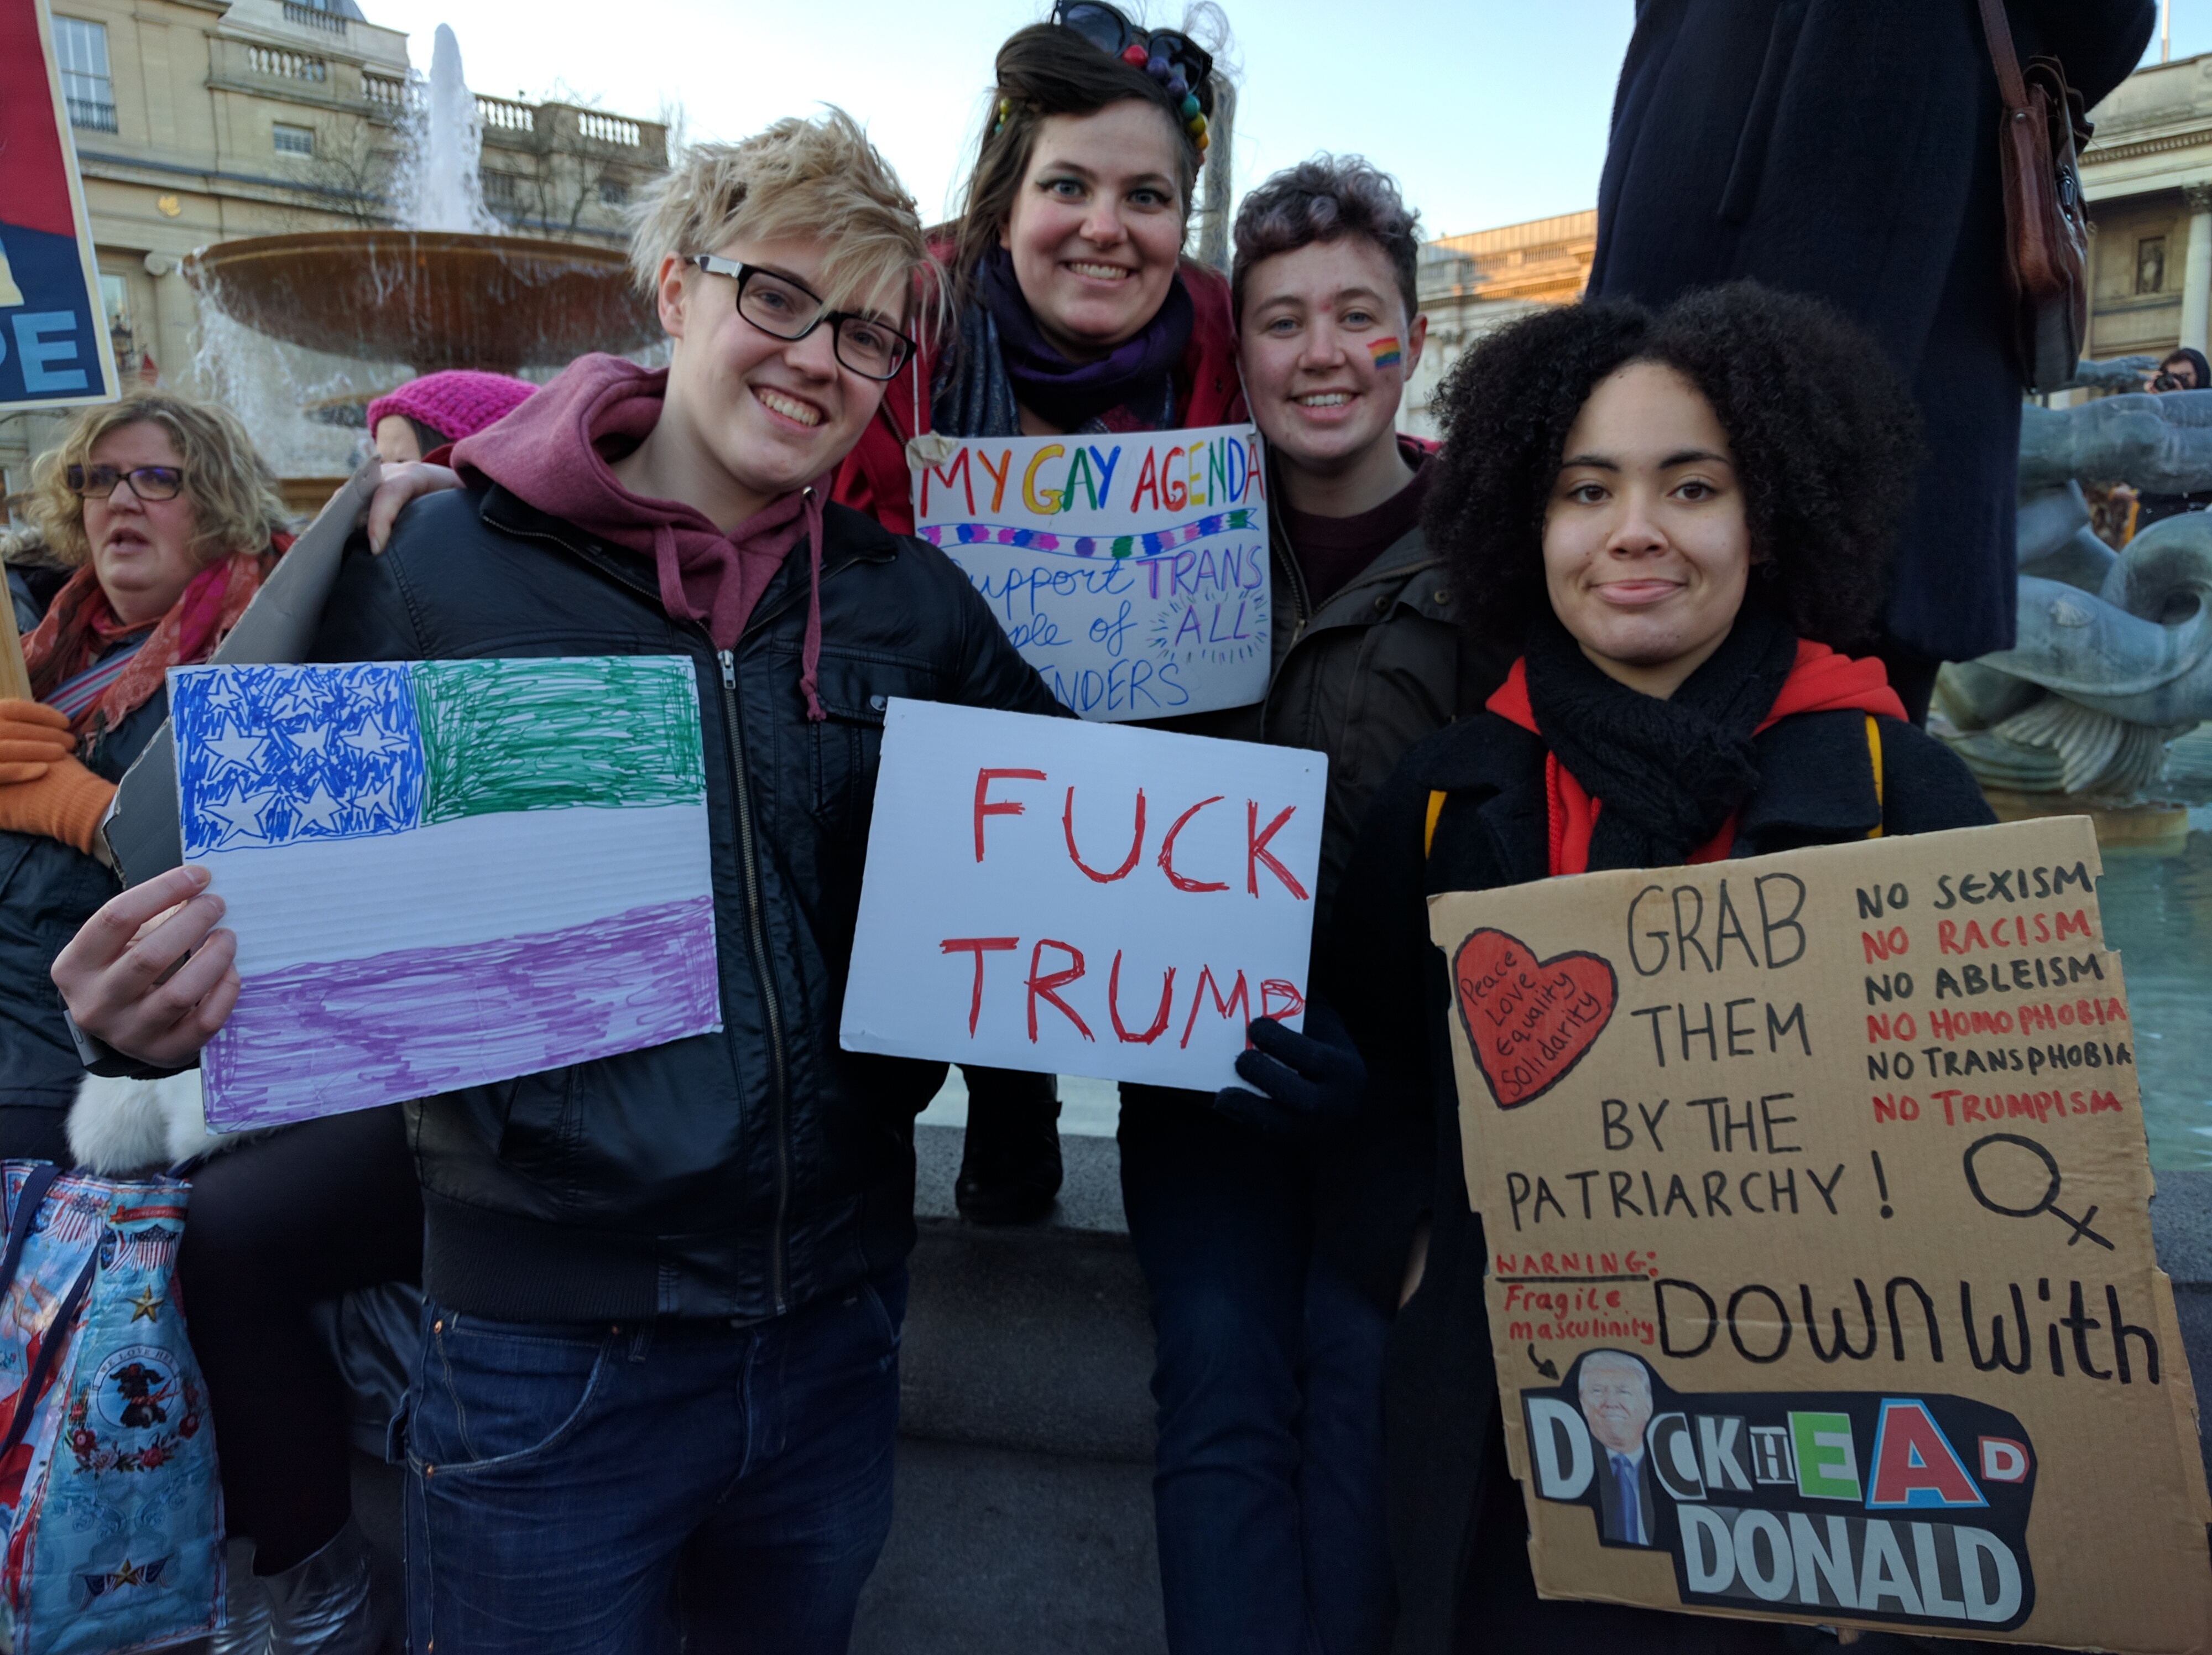 PE
MY GAY AGENDA
support TRANS
of ALL
FUCK
TRUMP
Peace
Love
Equality
Solidarity
GRAB
THEM
BY THE
PATRIARCHY!
NO SEXISM
NO RACISM
NO ABLEISM
NO HOMOPHOBIA
NO TRANSPHOBIA
NO TRUMPISM
WARNING:
Fragile
masculinity
DOWN With
DICKHEAD
DONALD